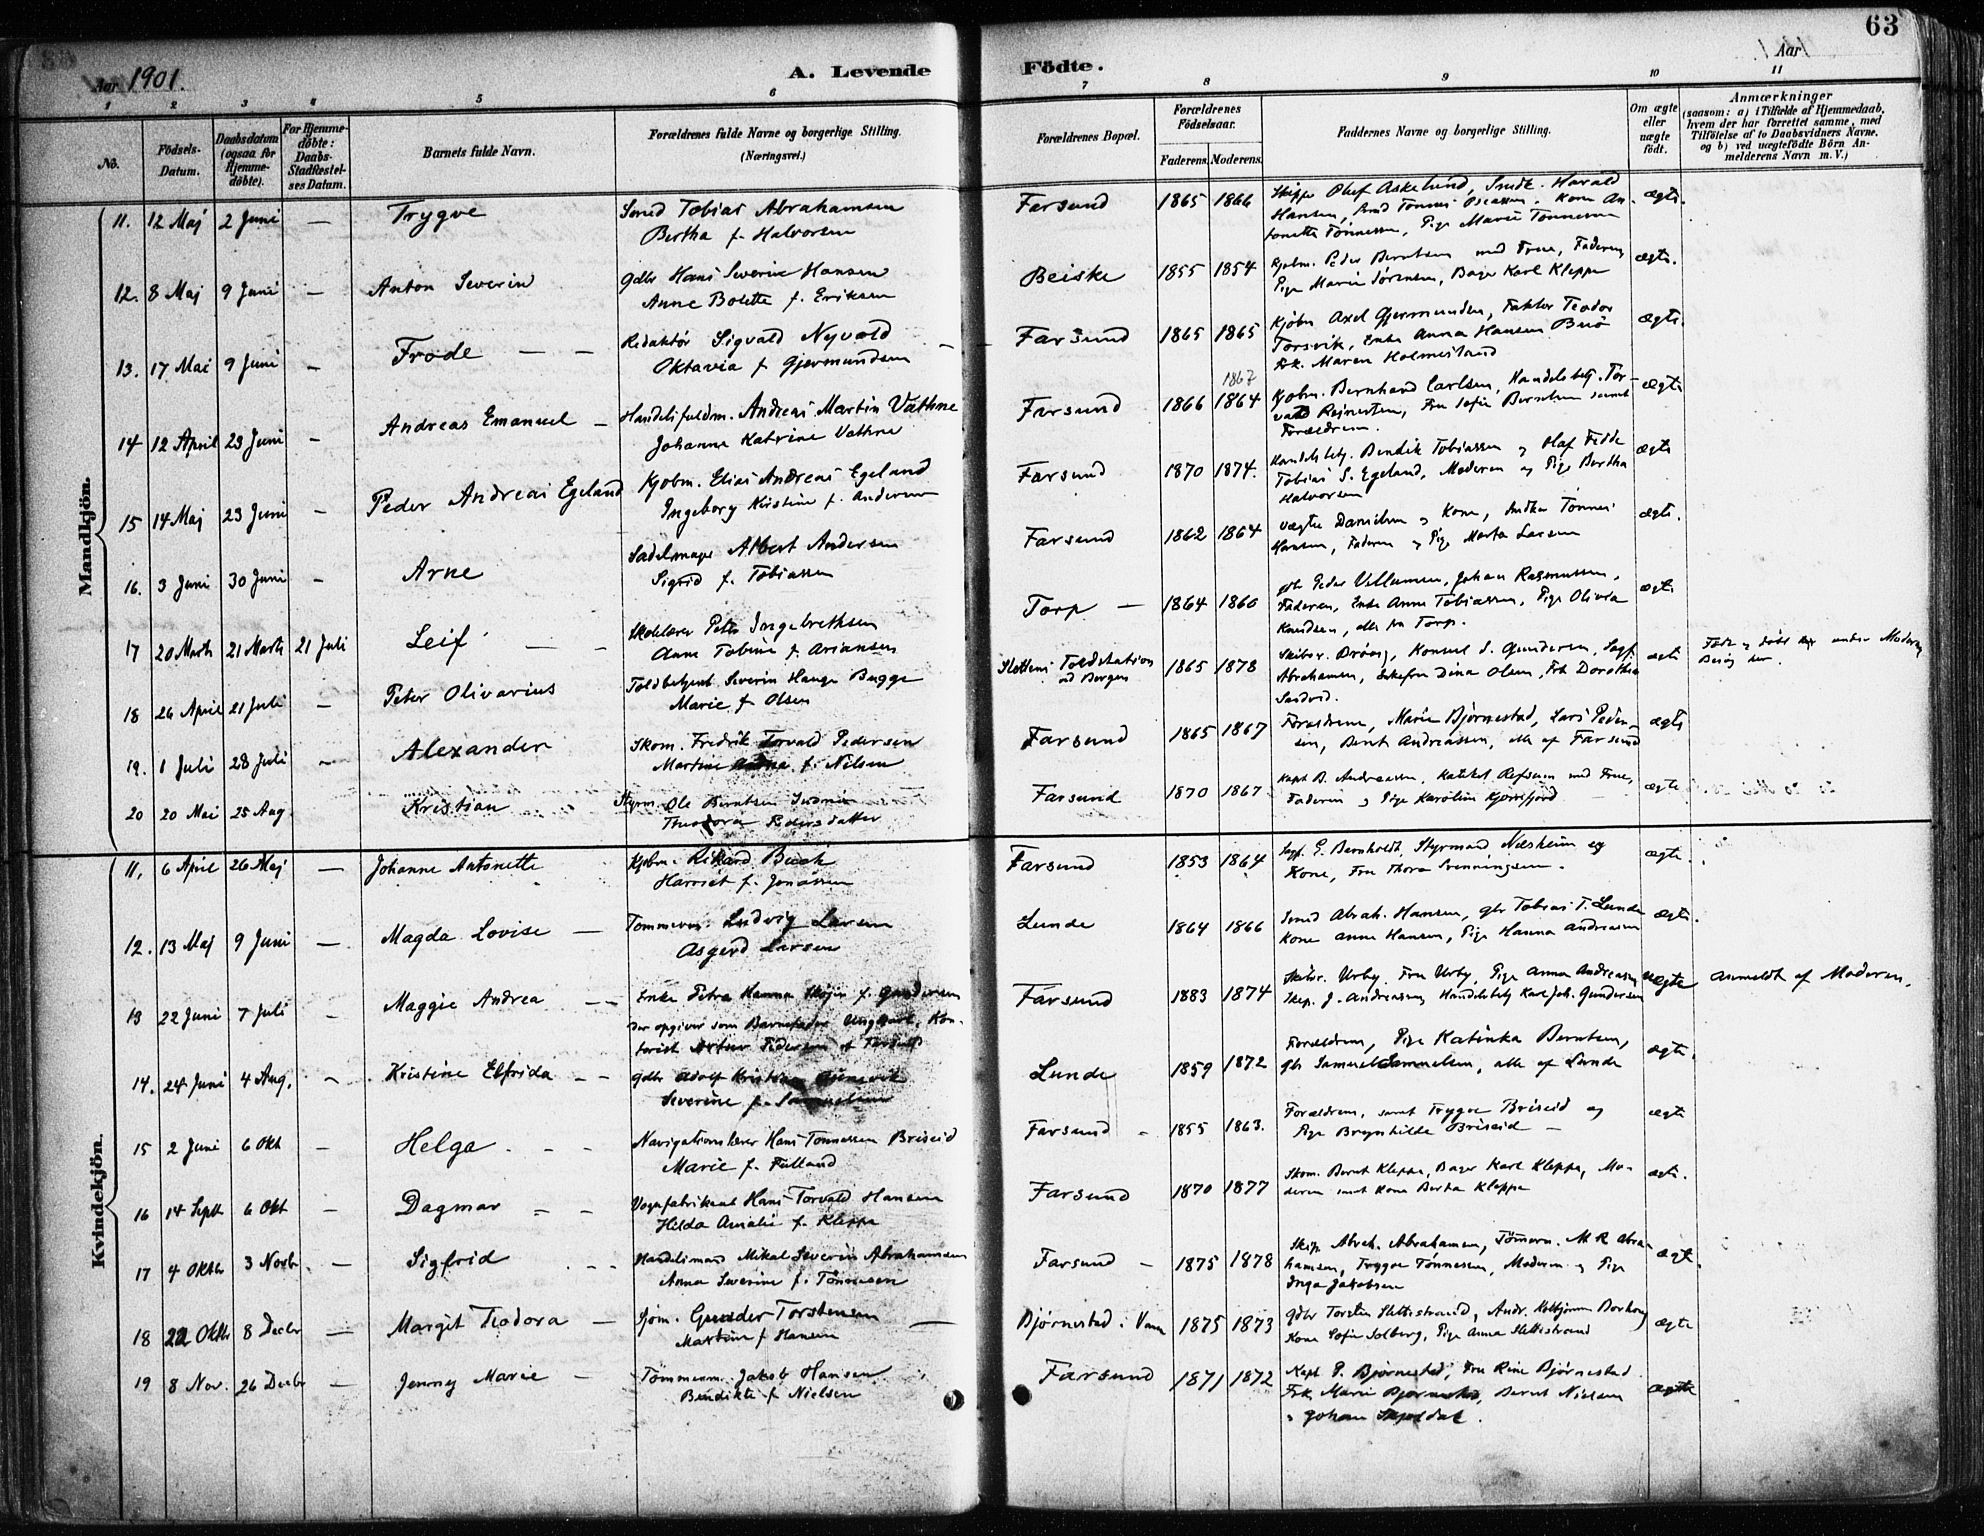 63
Aar 1901.
A. Levende
Födte.
Aar
1 2 3 4 5 6 7 8 9 10 11
Nö.
Födsels-Datum.
Daabsdatum (ogsaa for Hjemme-döbte).
For Hjemme-döbte: Daabs-Stadfæstel-ses Datum.
Barnets fulde Navn.
Forældrenes fulde Navne og borgerlige Stilling. (Næringsvei.)
Forældrenes Bopæl.
Forældrenes Födselsaar.
Faderens. Moderens.
Faddernes Navne og borgerlige Stilling.
Om ægte eller uægte födt.
Anmærkninger (saasom: a) i Tilfælde af Hjemmedaab, hvem der har forrettet samme, med Tilföielse af to Daabsvidners Navne, og b) ved uægtefödte Börn An-melderens Navn m. V.)
Mandkjön.
11. 12 Maj 2 Juni — Trygve Smed Tobias Abrahamsen Farsund 1865 1866 Skipp Oluf Askelund, Smdk. Harald ægte.
Bertha f. Halvorsen Hansen, Tønnes Kone An-
Tønnessen, Pige Marie Tønnessen
12. 8 Maj 9 Juni — Anton Severin Gdbr Hans Severin Hansen Beiske 1855 1854 Kjøbm. Peder Berntsen med Frue, Faderen ægte.
Anne Bolette f. Eriksen Pige Marie Sørensen, Bager Karl Kleppe
13. 17 Mai 9 Juni — Frode — — Redaktør Sigvald Nyvold Farsund 1865 1865 Kjøbm Axel Gjermundsen, Faktor Teodor ægte.
Oktavia f. Gjermundsen Torsvik, Enke Anna Hansen
Frk. Maren Holmestrand
14 12 April 23 Juni — Andreas Emanuel — Handelsfuldm. Andreas Martin Vathne Farsund 1866 1867 1864 Kjøbm. Bernhard Carlsen, Handelsbetj. Tor- ægte
Johanne Katrine Vathne Fru Sofie Berntsen samt
Forældrene.
15 14 Maj 23 Juni — Peder Andreas Egeland Kjøbm. Elias Andreas Egeland Farsund 1870 1874. Handelsbetj. Bendik Tobiassen og Olaf Fedde ægte
Ingeborg Kirstine f. Andersen Tobias S. Egeland, Moderen og Pige Bertha
Halvorsen
16. 3 Juni 30 Juni — Arne Sadelmager Albert Andersen Farsund 1862 1864 Vægter Danielsen og Kone, Tønnes ægte.
Sigrid f. Tobiassen Hansen, Faderen og Pige Marta Larsen
17 20 Marts 21 Marts 21 Juli Leif — — Skolelærer Peter Ingebrethsen Torp — 1864 1860 gbr Peder Villumsen, Johan Rasmussen, ægte
Anne Tobine f. Ariansen Faderen, Enke Anne Tobiassen, Pige Olivia
Knudsen, alle fra Torp.
18 26 April 21 Juli — Peter Olivarius Toldbetjent Severin Hauge Bugge Slottens Toldstation 1865 1878 Skibsr. Konsul S. Gundersen, Sagf. ægte Født og døbt her under Moderens
Marie f. Olsen ved Bergen Abrahamsen, Enkefru Dina Olsen, Frk Dorothea Besøg her.
19. 1 Juli 28 Juli — Alexander Skom. Fredrik Torvald Pedersen Farsund 1865 1867 Forældrene, Marie Bjørnestad, Lars Peder- ægte
Martine f. Nilsen sen, Bernt Andreassen, alle af Farsund
20 20 Mai 25 Aug Kristian Styrm. Ole Berntsen Farsund 1870 1867 Kapt B. Andreassen, Refsum med Frue, ægte
Theodora Pedersdatter Faderen og Pige Karoline
Kvindekjön.
11. 6 April 26 Maj — Johanne Antonette Kjøbm. Rikard Buch Farsund 1853 1864 Sagf. E. Bernholdt, Styrmand Nilsheim og ægte.
Harriet f. Jonassen Kone, Fru Thora Svenningsen.
12. 13 Maj 9 Juni — Magda Lovise — Tømmerm. Ludvig Larsen Lunde 1864 1866 Smed Abrah. Hansen, gbr Tobias T. Lunde ægte.
Asgerd Larsen Kone Anne Hansen, Pige Hanna Andreasen
13 22 Juni 7 Juli — Maggie Andrea — — Enke Petra Hanna f. Gundersen Farsund 1883 1874 Skibsr. Urby, Fru Urby, Pige Anna Andreassen uægte Anmeldt af Moderen.
der opgiver som Barnefader Ungkarl, Kon- Skip. J. Andreassen Handelsbetj Karl Joh. Gundersen
torist Pedersen af Farsund
14. 24 Juni 4 Aug. — Kristine Elfrida — — Gdbr Adolf Kristian Lunde 1859 1872 Forældrene, Pige Katinka Berntsen, ægte.
Severine f. Samuelsen gbr Samuel Samuelsen, alle af Lunde
15 2 Juni 6 Okt — Helga Navigationslærer Hans Tønnessen Briseid Farsund 1855 1863. Forældrene, samt Trygve Briseid og ægte
Marie f. Fulland Pige Brynhilde Briseid —
16 14 Sept 6 Okt — Dagmar Vognfabrikant Hans Torvald Hansen Farsund 1870 1877 Skom. Bernt Kleppe, Bager Karl Kleppe, Mo- ægte.
Hilda Amalie f. Kleppe deren samt Kone Berta Kleppe
17 4 Oktbr 3 Novbr. — Sigfrid Handelsmand Mikal Severin Abrahamsen Farsund — 1875 1878 Skip. Abrah. Abrahamsen, Tømerm. M R Abra- ægte.
Anna Severine f. Tønnesen hamsen, Trygve Tønnessen, Moderen og Pige
Inga Jakobsen
18 22 Oktbr 8 Decbr — Margit Teodora — Gunder Torstensen Bjørnestad i Vanse 1875 1873 Gdbr Torsten Slettestrand, Andr. ægte
Martine f Hansen Kone Sofie Solberg, Pige Anna Slettestrand
19 8 Nov. 26 Decbr — Jenny Marie — Tømmerm. Jakob Hansen Farsund 1871 1872 Kapt P. Bjørnestad, Fru Rine Bjørnestad ægte
Bendikte f Nielsen Frk. Marie Bjørnestad, Bernt Nielsen